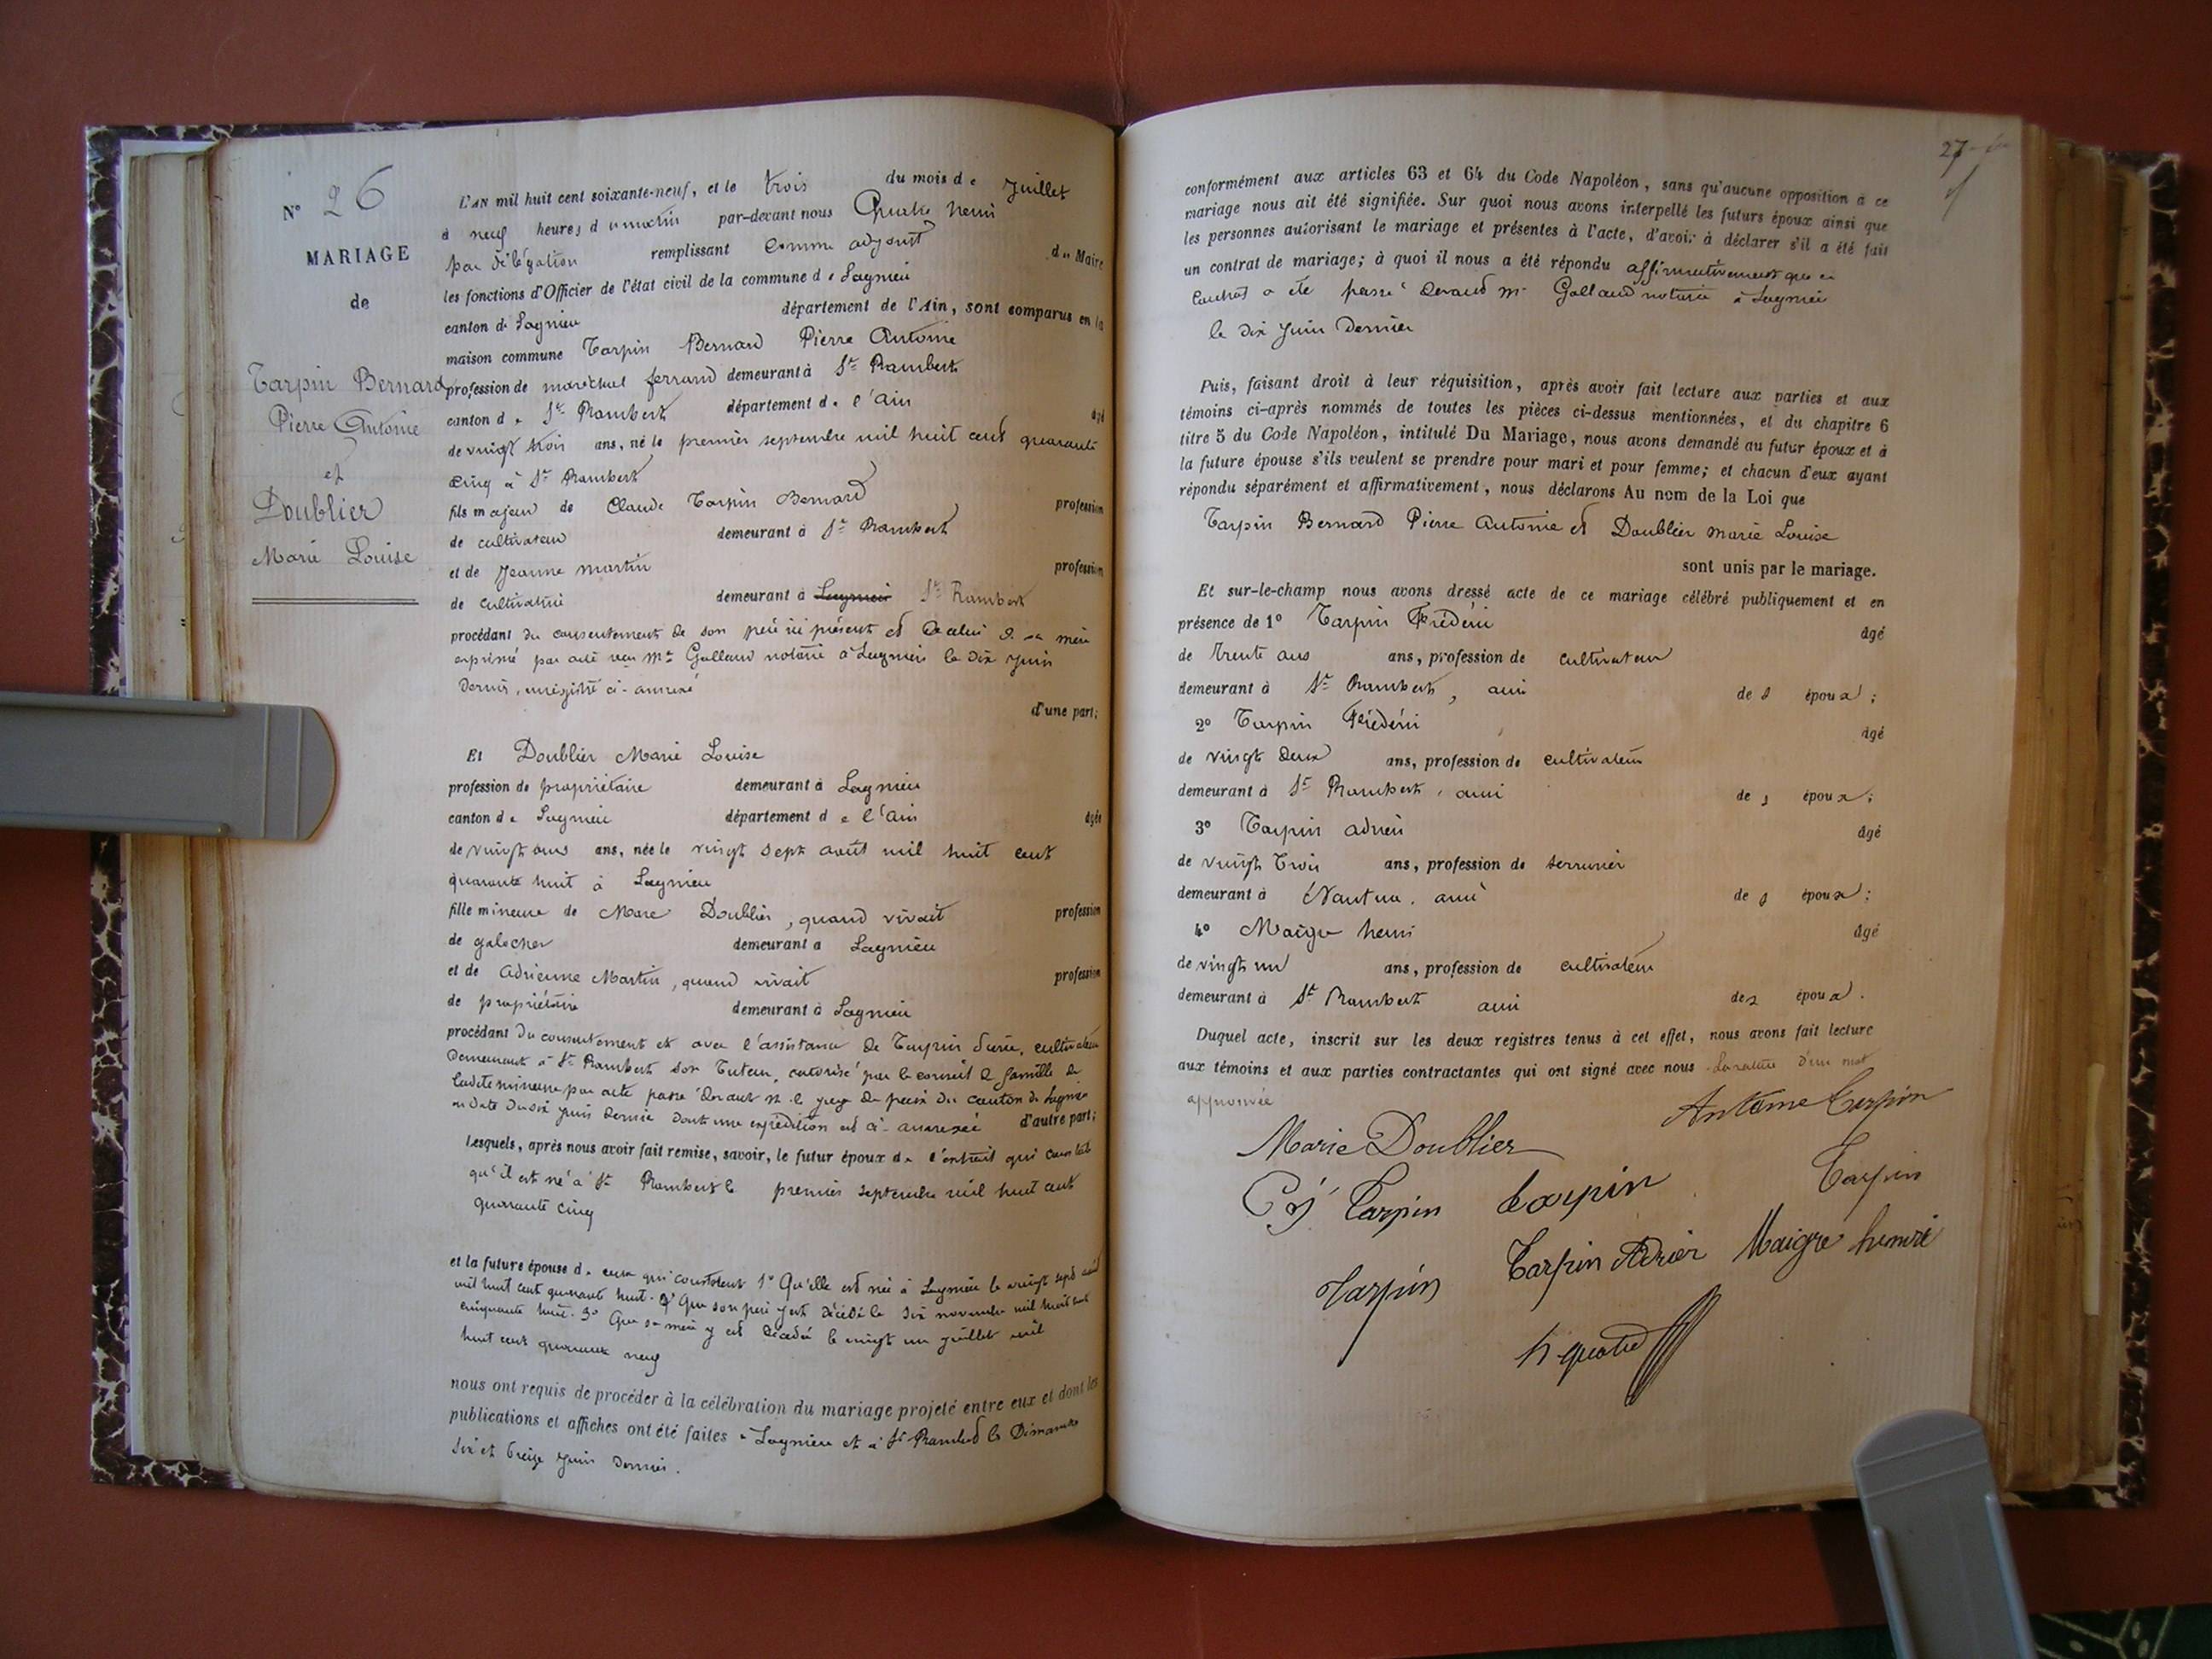 N° 26
MARIAGE
de
Tarpin Bernard
Pierre Antoine
et
Doublier
Marie Louise
L'AN mil huit cent soixante-neuf, et le trois du mois de Juillet
à neuf heures du matin par-devant nous Quatre henri
par délégation remplissant comme adjoint du Maire
les fonctions d'Officier de l'état civil de la commune de Lagnieu
canton de Lagnieu département de l'Ain, sont comparus en la
maison commune Tarpin Bernard Pierre Antoine
profession de maréchal ferrand demeurant à St Rambert
canton de St Rambert département de l'ain âgé
de vingt trois ans, né le premier septembre mil huit cent quarante
cinq à St Rambert
fils majeur de Claude Tarpin Bernard profession
de cultivateur demeurant à St Rambert
et de Jeanne martin profession
de cultivatrice demeurant à Lagnieu St Rambert
procédant du consentement de son père ici présent et de celui de sa mère
exprimé par acte reçu Me Galland notaire à Lagnieu le dix juin
dernier, enregistré ci-annexé
d'une part;
Et Doublier Marie Louise
profession de propriétaire demeurant à Lagnieu
canton de Lagnieu département de l'ain âgée
de vingt ans ans, née le vingt sept août mil huit cent
quarante huit à Lagnieu
fille mineure de Marc Doublier, quand vivait profession
de galocher demeurant à Lagnieu
et de Adrienne Martin, quand vivait profession
de propriétaire demeurant à Lagnieu
procédant du consentement et avec l'assistance de Tarpin cultivateur
demeurant à St Rambert son Tuteur, autorisé par le conseil de famille de
ladite mineure par acte passé devant M. le juge de paix du canton de Lagnieu
en date du dix juin dernier dont une expédition est ci-annexée d'autre part;
Lesquels, après nous avoir fait remise, savoir, le futur époux de l'extrait qui constate
qu'il est né à St Rambert le premier septembre mil huit cent
quarante cinq
et la future épouse de ceux qui constatent 1° Qu'elle est née à Lagnieu le vingt sept août
mil huit cent quarante huit. 2° Que son père y est décédé le six novembre mil huit cent
cinquante huit. 3° Que sa mère y est décédée le vingt un juillet mil
huit cent quarante neuf
nous ont requis de procéder à la célébration du mariage projeté entre eux et dont les
publications et affiches ont été faites à Lagnieu et à St Rambert les Dimanches
six et treize juin dernier.
27
conformément aux articles 63 et 64 du Code Napoléon, sans qu'aucune opposition à ce
mariage nous ait été signifiée. Sur quoi nous avons interpellé les futurs époux ainsi que
les personnes autorisant le mariage et présentes à l'acte, d'avoir à déclarer s'il a été fait
un contrat de mariage; à quoi il nous a été répondu affirmativement que ce
contrat a été passé devant Me Galland notaire à Lagnieu
le dix juin dernier
Puis, faisant droit à leur réquisition, après avoir fait lecture aux parties et aux
témoins ci-après nommés de toutes les pièces ci-dessus mentionnées, et du chapitre 6
titre 5 du Code Napoléon, intitulé Du Mariage, nous avons demandé au futur époux et à
la future épouse s'ils veulent se prendre pour mari et pour femme; et chacun d'eux ayant
répondu séparément et affirmativement, nous déclarons Au nom de la Loi que
Tarpin Bernard Pierre Antoine et Doublier Marie Louise
sont unis par le mariage.
Et sur-le-champ nous avons dressé acte de ce mariage célébré publiquement et en
présence de 1° Tarpin Frédéric âgé
de Trente ans ans, profession de cultivateur
demeurant à St Rambert, ami des époux;
2° Tarpin Frédéric âgé
de vingt deux ans, profession de cultivateur
demeurant à St Rambert, ami des époux;
3° Tarpin adrien âgé
de vingt Trois ans, profession de serrurier
demeurant à Nantua, ami des époux;
4° Maigre henri âgé
de vingt un ans, profession de cultivateur
demeurant à St Rambert ami des époux.
Duquel acte, inscrit sur les deux registres tenus à cet effet, nous avons fait lecture
aux témoins et aux parties contractantes qui ont signé avec nous La rature d'un mot
approuvée
Antoine Tarpin
Marie Doublier
Tarpin
Tarpin tarpin
Tarpin Adrien Maigre henri
Tarpin
h quatre